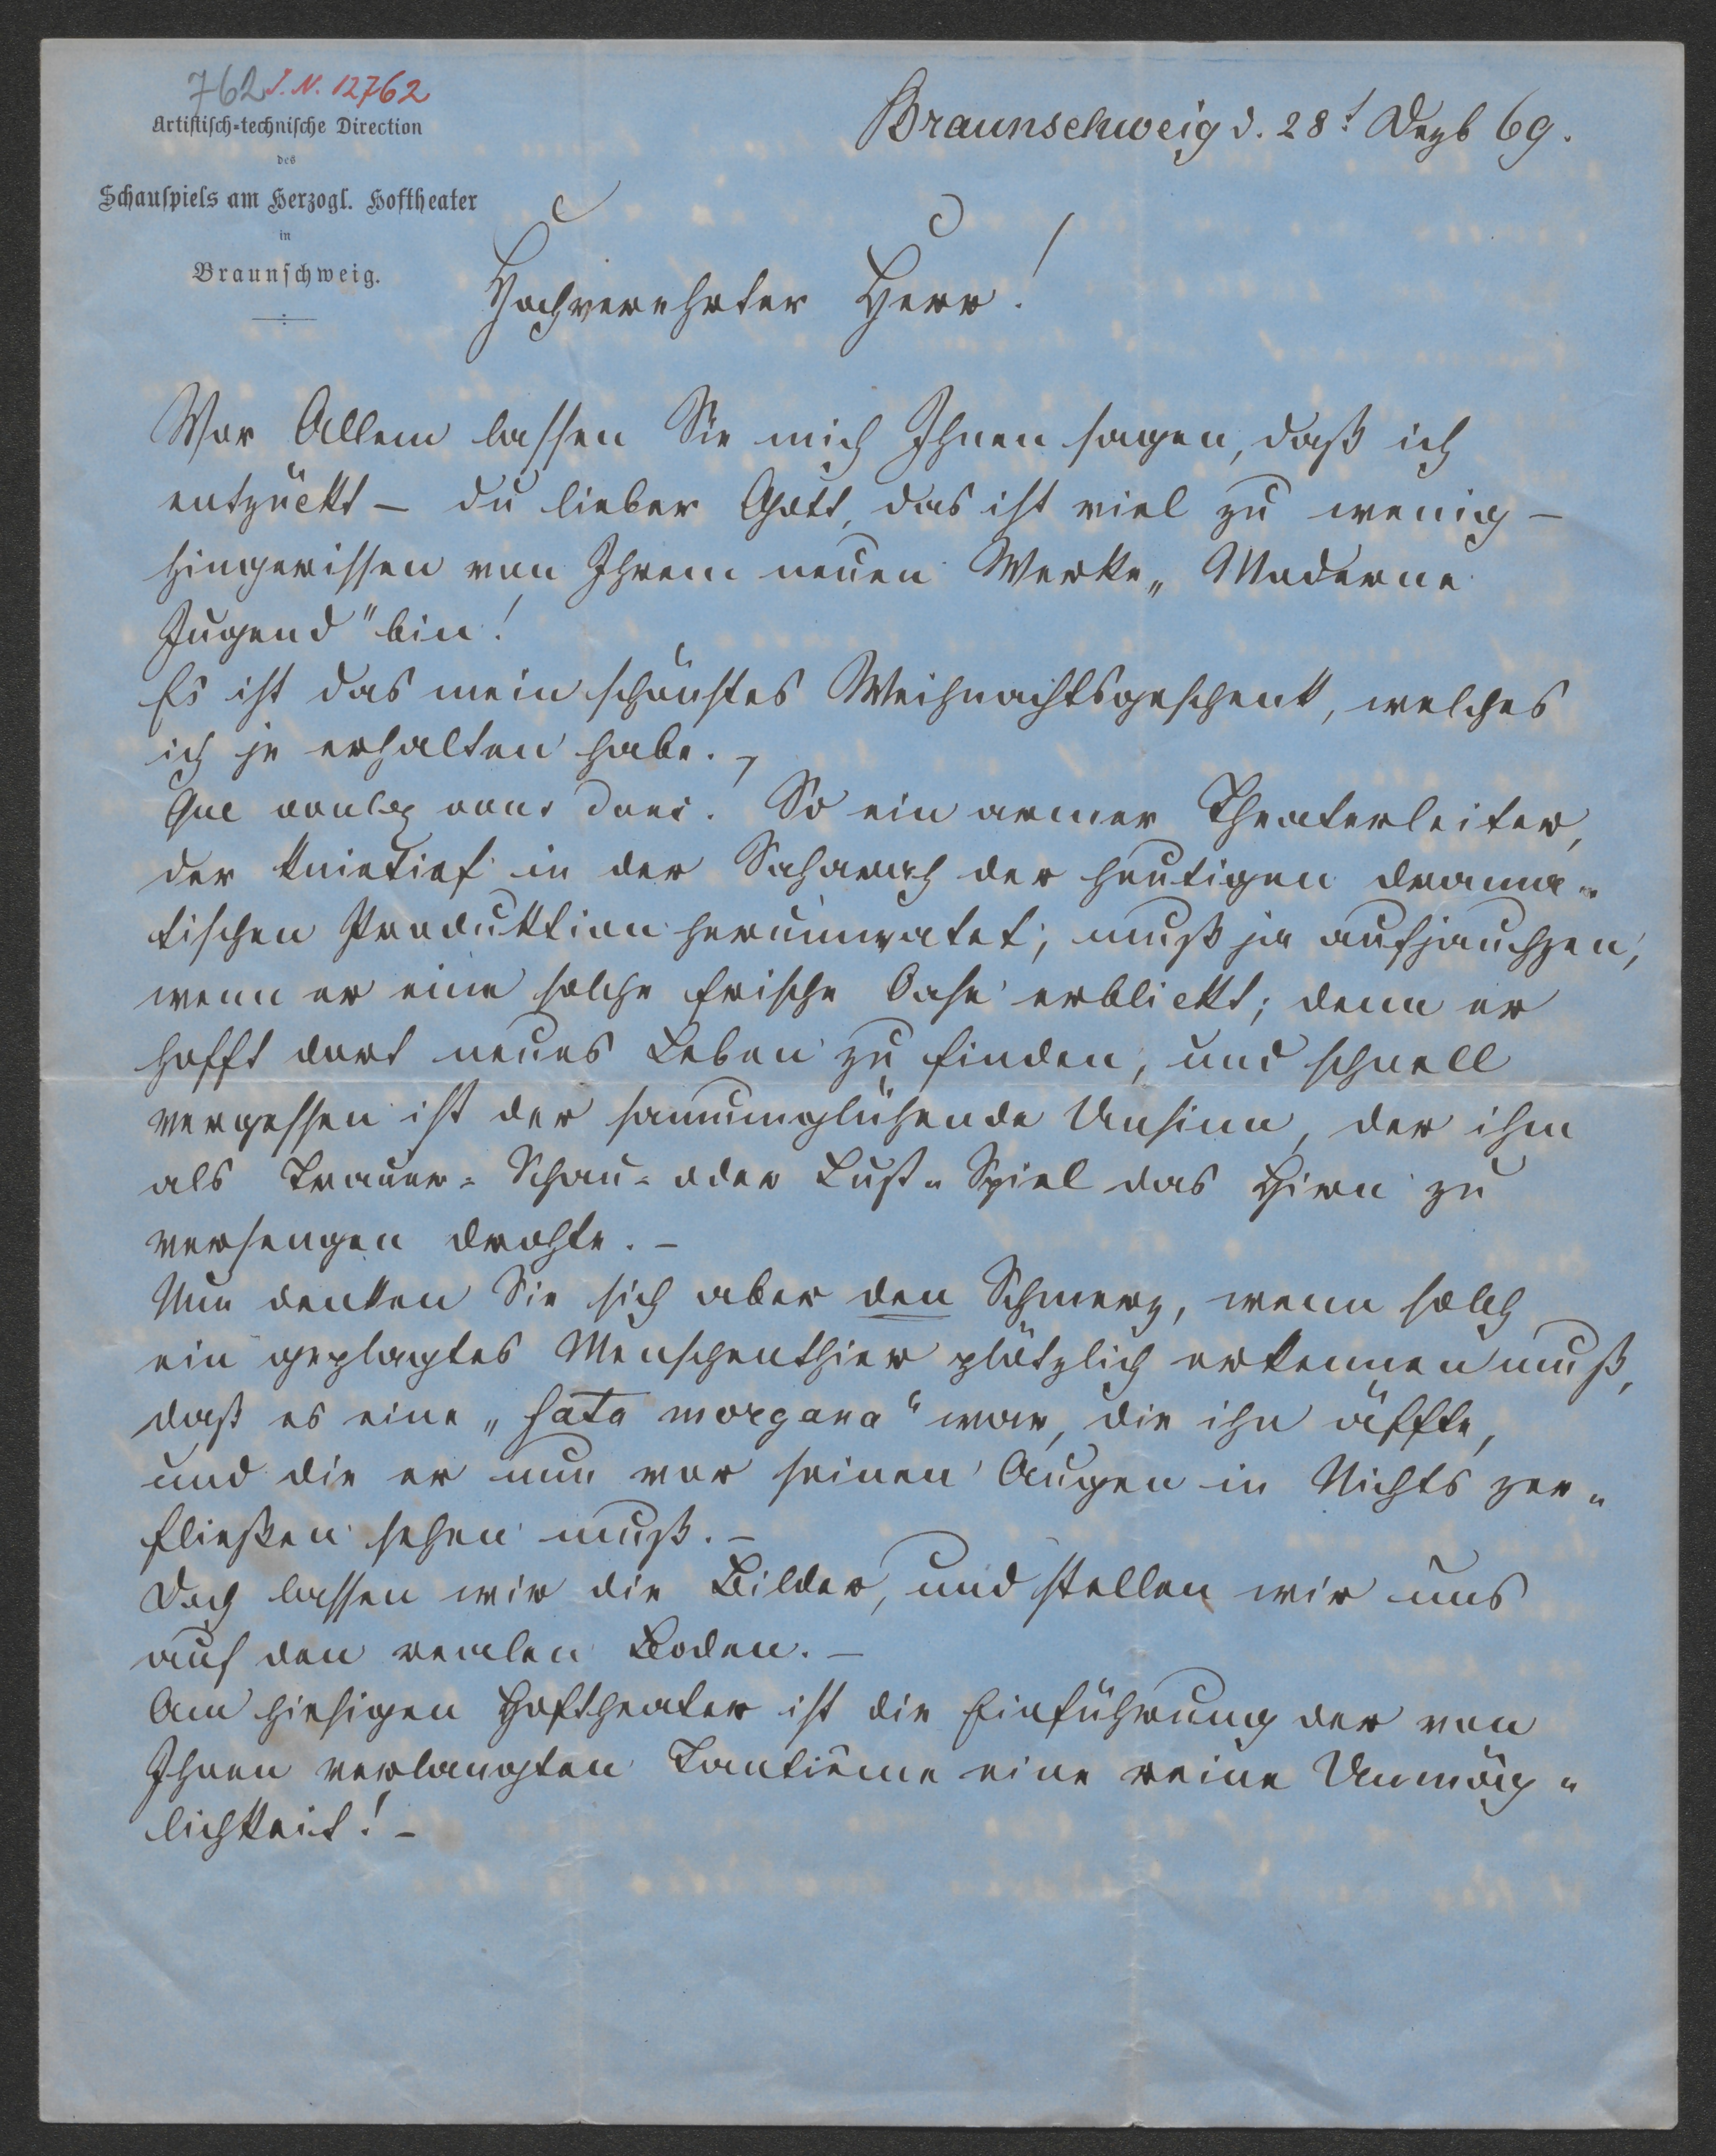 762 I. N. 12762
Artistisch-technische Direction
des
Schauspiels am Herzogl. Hoftheater
in
Braunschweig.
Braunschweig d. 28t Dezb 69.
Hochverehrter Herr!
Vor Allem lassen Sie mich Ihnen sagen, daß ich
entzückt – du lieber Gott, das ist viel zu wenig –
hingerissen von Ihrem neuen Werke „Moderne
Jugend" bin!
Es ist das mein schönstes Weihnachtsgeschenk, welches
ich je erhalten habe. –
Que voulez vous donc! So ein armer Theaterleiter,
der knietief in der Saharah der heutigen drama-
tischen Produktion herumwatet, muß ja aufjauchzen,
wenn er eine solche frische Oase erblickt; denn er
hofft dort neues Leben zu finden, und schnell
vergessen ist der samumglühende Unsinn, der ihm
als Trauer- Schau- oder Lust-Spiel das Hirn zu
versengen drohte. –
Nun denken Sie sich aber den Schmerz, wenn solch
ein geplagtes Menschenthier plötzlich erkennen muß,
daß es eine „fata morgana" war, die ihn äffte,
und die er nun vor seinen Augen in Nichts zer-
fließen sehen muß. –
Doch lassen wir die Bilder, und stellen wir uns
auf den realen Boden. –
Am hiesigen Hoftheater ist die Einführung der von
Ihnen verlangten Tantième eine reine Unmög-
lichkeit! –